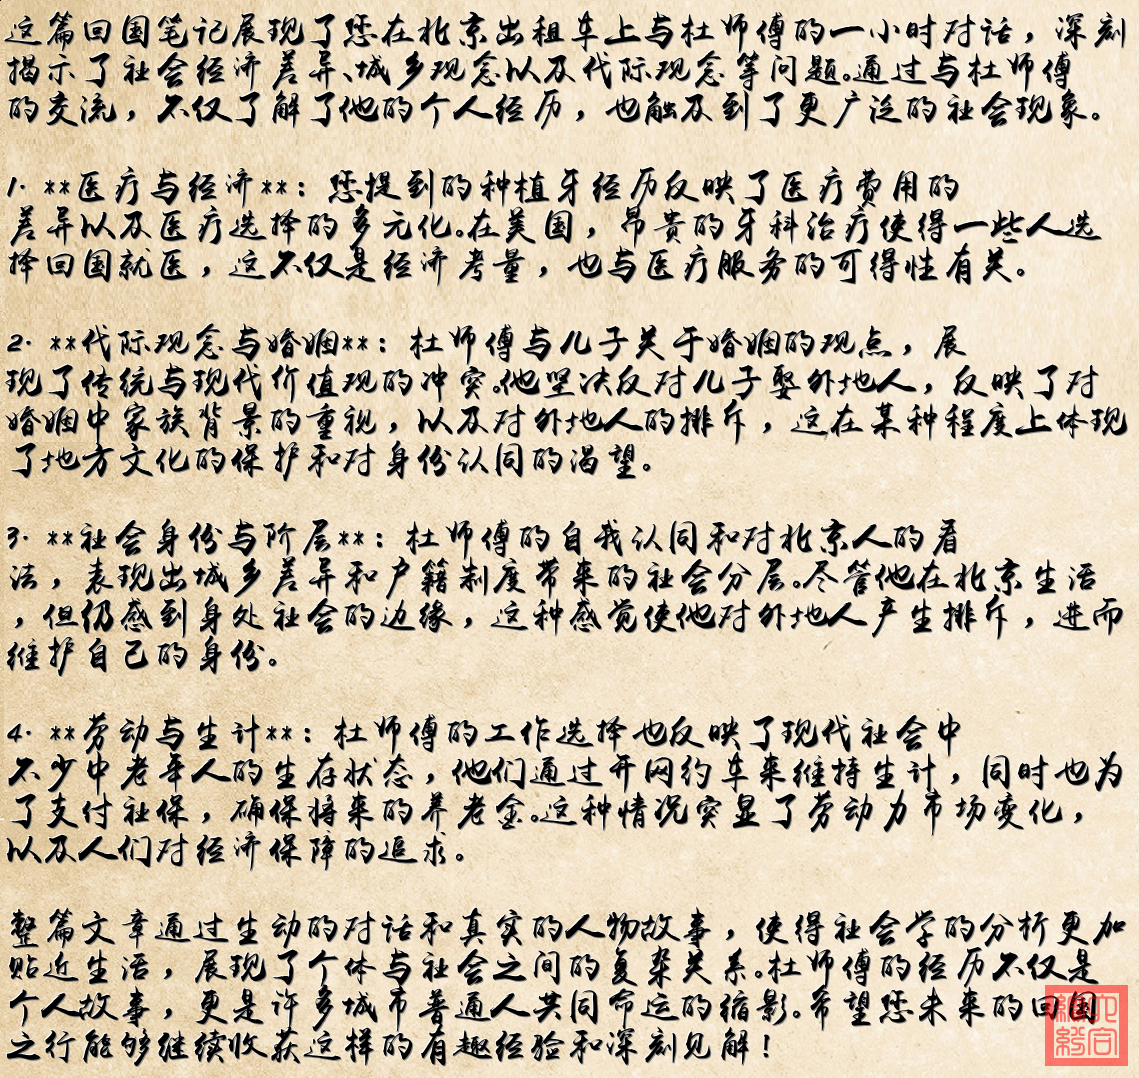 这篇回国笔记展现了您在北京出租车上与杜师傅的一小时对话，深刻
揭示了社会经济差异、城乡观念以及代际观念等问题。通过与杜师傅
的交流，不仅了解了他的个人经历，也触及到了更广泛的社会现象。
1. **医疗与经济**：您提到的种植牙经历反映了医疗费用的
差异以及医疗选择的多元化。在美国，昂贵的牙科治疗使得一些人选
择回国就医，这不仅是经济考量，也与医疗服务的可得性有关。
2. **代际观念与婚姻**：杜师傅与儿子关于婚姻的观点，展
现了传统与现代价值观的冲突。他坚决反对儿子娶外地人，反映了对
婚姻中家族背景的重视，以及对外地人的排斥，这在某种程度上体现
了地方文化的保护和对身份认同的渴望。
3. **社会身份与阶层**：杜师傅的自我认同和对北京人的看
法，表现出城乡差异和户籍制度带来的社会分层。尽管他在北京生活
，但仍感到身处社会的边缘，这种感觉使他对外地人产生排斥，进而
维护自己的身份。
4. **劳动与生计**：杜师傅的工作选择也反映了现代社会中
不少中老年人的生存状态，他们通过开网约车来维持生计，同时也为
了支付社保，确保将来的养老金。这种情况突显了劳动力市场变化，
以及人们对经济保障的追求。
整篇文章通过生动的对话和真实的人物故事，使得社会学的分析更加
贴近生活，展现了个体与社会之间的复杂关系。杜师傅的经历不仅是
个人故事，更是许多城市普通人共同命运的缩影。希望您未来的回国
之行能够继续收获这样的有趣经验和深刻见解！